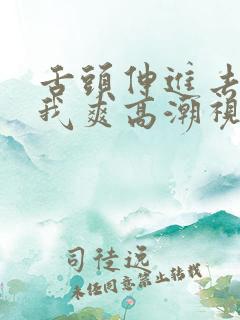 舌頭伸進去
我爽高潮視
司徒远
未经同意禁止转载